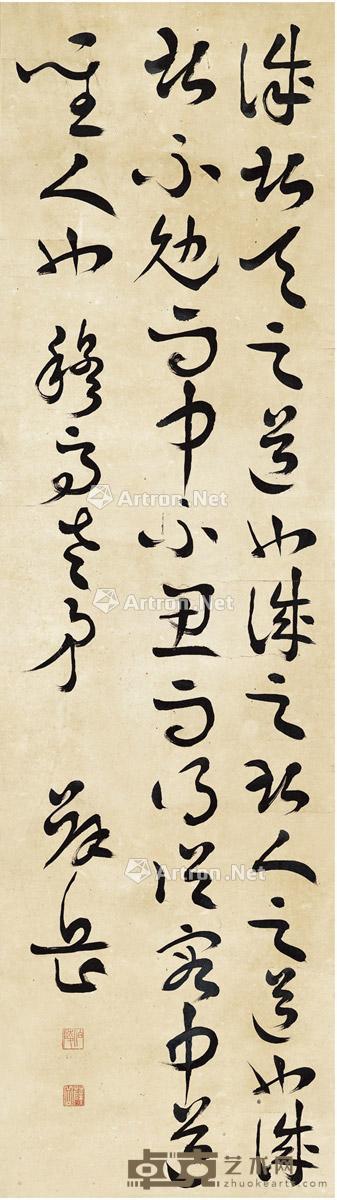 誠者天之道也誠之者人之道也誠
者不勉而中不思而得從容中道
聖人也 穆 老弟 薛岳
伯陵
薛岳
Artron.Net
Artron.Net
Artron.Net
Artron.Net
卓克艺术网
www.zhuokearts.com